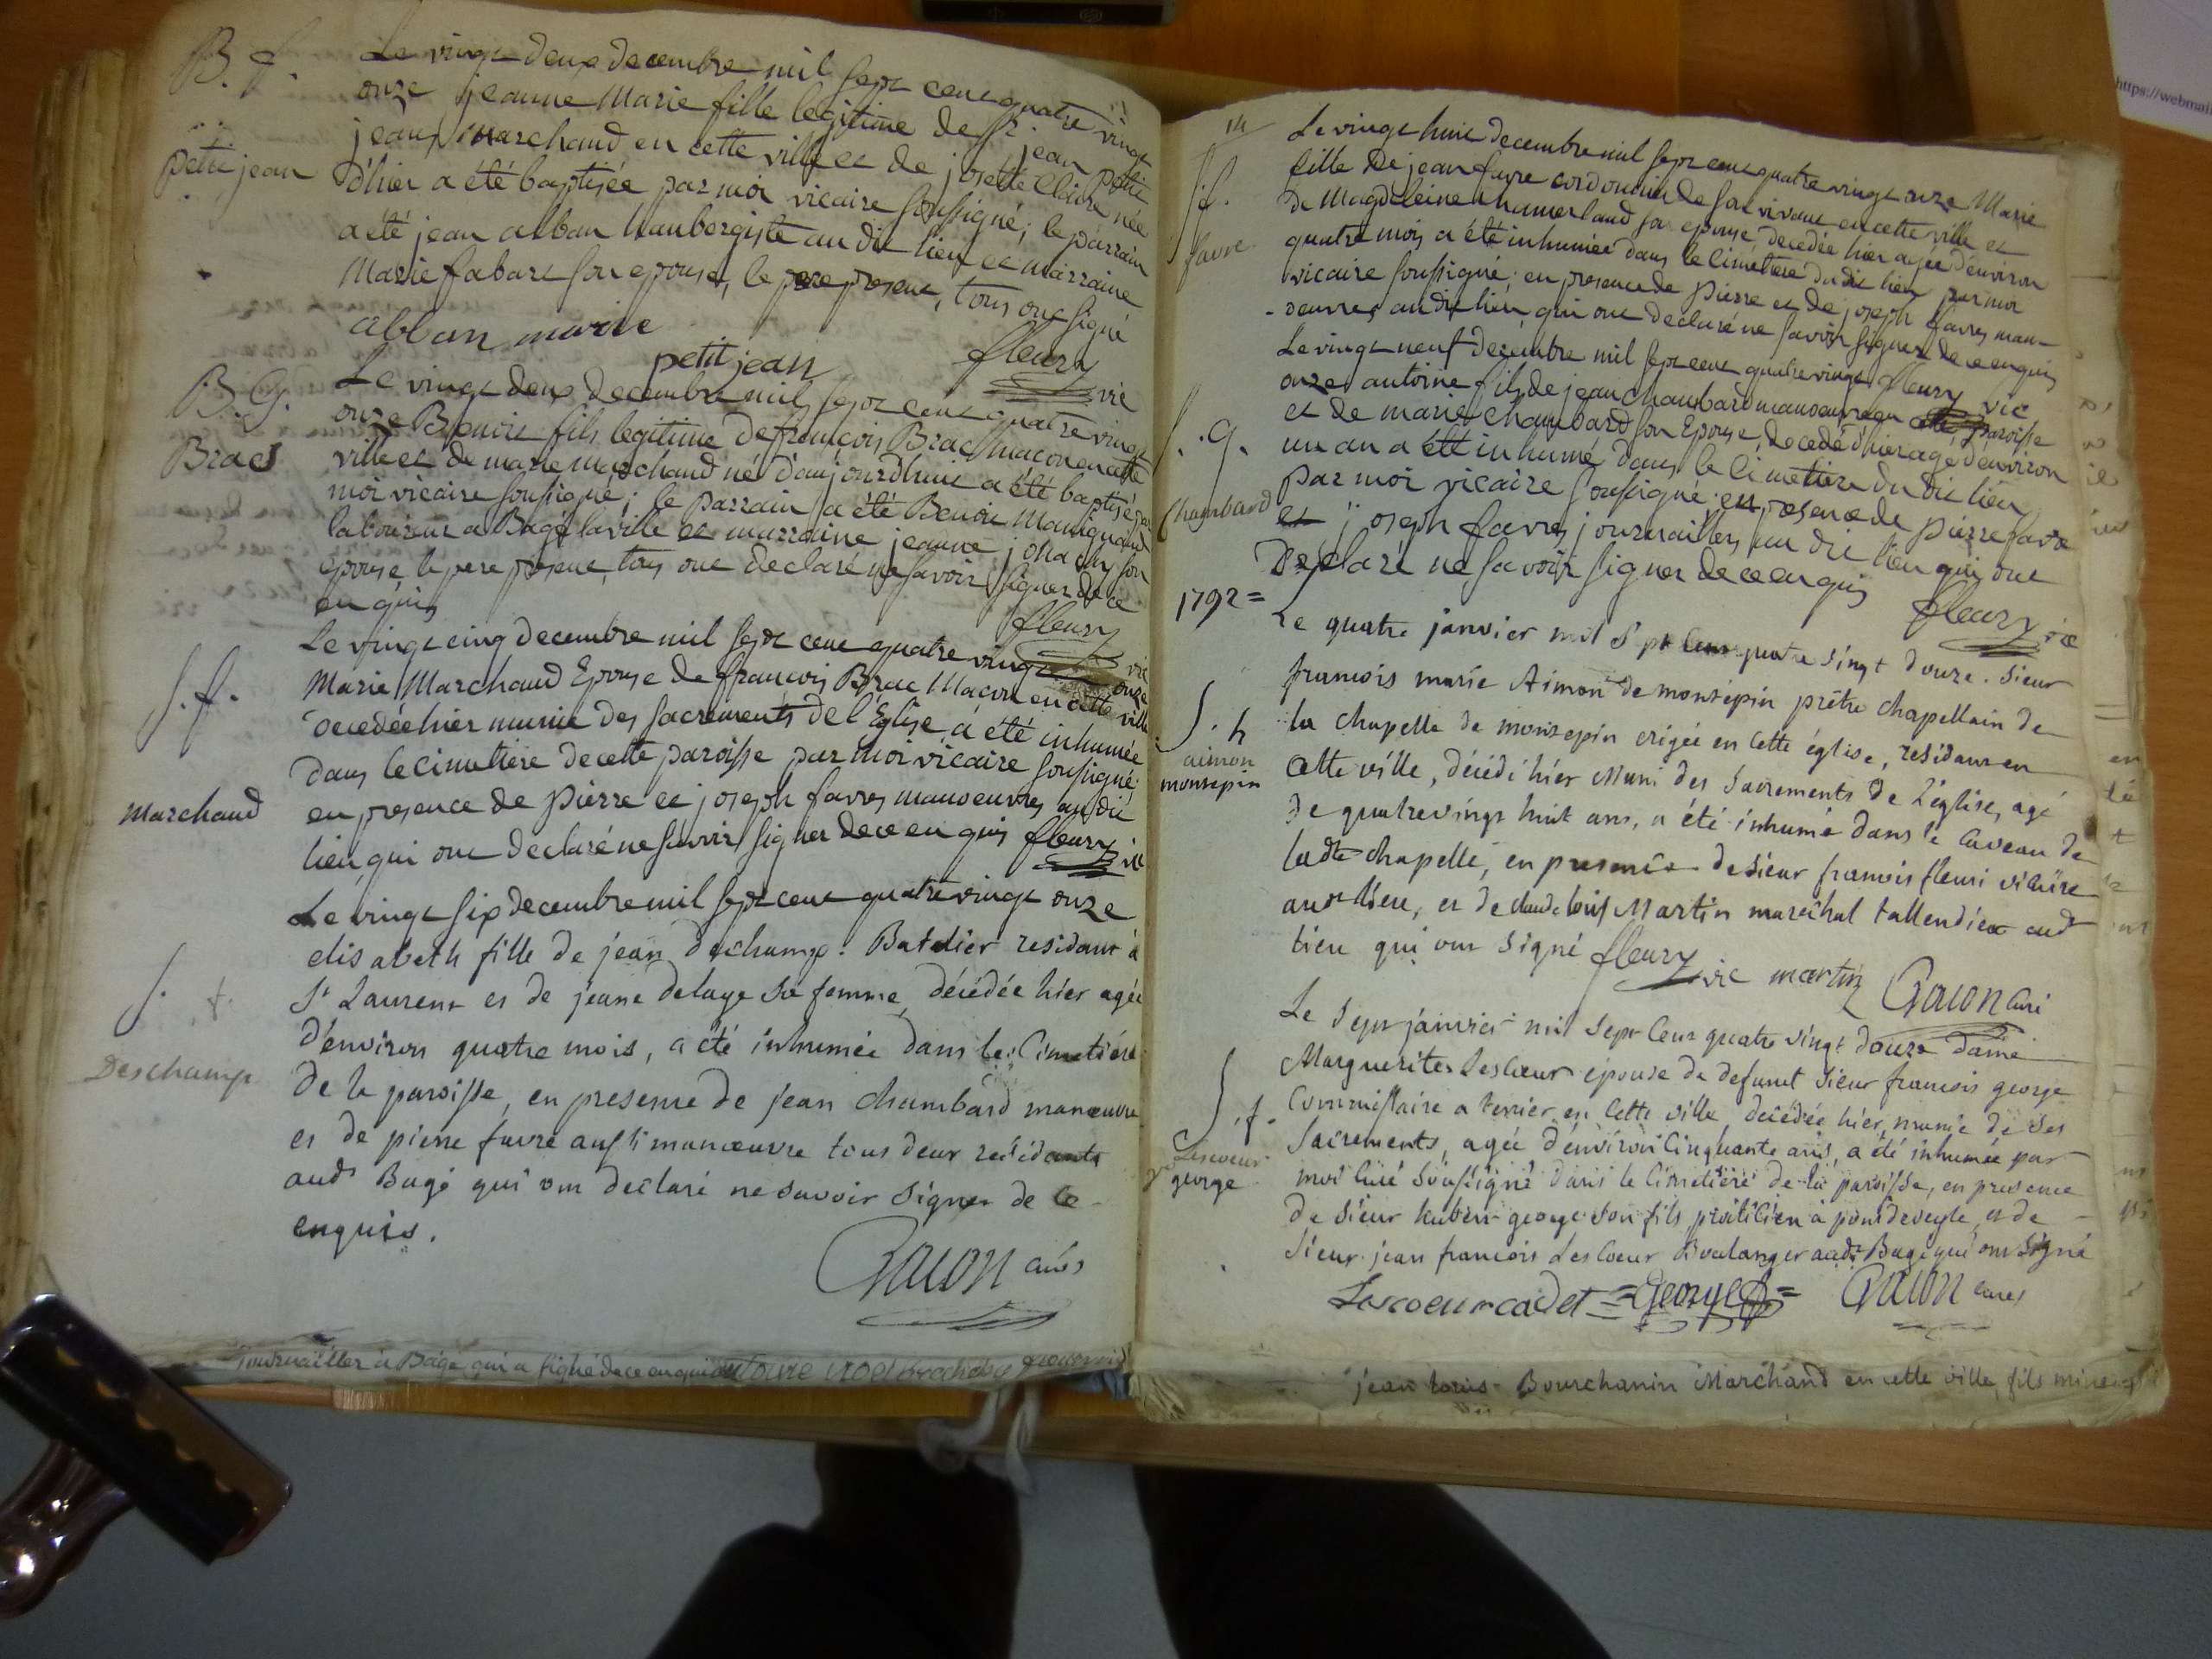 B. f.
petit jean
Le vingt deux decembre mil sept cent quatre vingt
onze jeanne Marie fille legitime de Sr. jean petit
jean, marchand en cette ville et de josette Claire née
d'hier a été baptisée par moi vicaire soussigné; le parrain
a été jean alban aubergiste au dit lieu et marraine
Marie fabare son epouse, le pere present, tous ont signé
alban marie
petit jean
fleury vic
B. G.
Brac
Le vingt deux decembre mil sept cent quatre vingt
onze Benoit fils legitime de françois Brac macon en cette
ville et de marie marchand né d'aujourd'hui a été baptisé par
moi vicaire soussigné; le parrain a été Benoit Manignand
laboureur a Bagé la ville et marraine jeanne son
epouse, le pere present, tous ont declaré ne savoir signer de ce
enquis
fleury vic
S. f.
Marchand
Le vingt cinq decembre mil sept cent quatre vingt onze
Marie Marchand Epouse de francois Brac Macon en cette ville
decedée hier munie des sacrements de l'Eglise a été inhumée
dans le cimetiere de cette paroisse par moi vicaire soussigné
en presence de pierre et joseph favres manoeuvres au dit
lieu, qui ont declaré ne savoir signer de ce enquis fleury vic
S. f.
Deschamp
Le vingt six decembre mil sept cent quatre vingt onze
elisabeth fille de jean dechamp. Batelier residant à
St Laurent et de jeane delaye sa femme, décédée hier agée
d'environ quatre mois, a été inhumée dans le Cimetiére
de la paroisse, en presence de jean chambard manœuvre
et de pierre favre aussi manœuvre tous deux residants
audt Bagé qui ont declaré ne savoir signer de ce
enquis.
curé
journaillier à Bagé qui a signé de ce enquis
S. f.
favre
Le vingt huit decembre mil sept cent quatre vingt onze Marie
fille de jean favre cordonnier de son vivant en cette ville et
de Magdeleine humerland sa epouse, decedée hier agée d'environ
quatre mois a été inhumée dans le cimetiere du dit lieu par moi
vicaire soussigné; en presence de pierre et de joseph favres man-
-oeuvres au dit lieu qui ont declaré ne savoir signer de ce enquis
fleury vic
S. G.
Chambard
Le vingt neuf decembre mil sept cent quatre vingt
onze antoine fils de jean Chambard manoeuvre en paroisse
et de marie chambard son Epouse, decedé d'hier agé d'environ
un an a été inhumé dans le cimetiere du dit lieu
par moi vicaire soussigné en presence de pierre favre
et joseph favres journailliers au dit lieu qui ont
déclaré ne savoir signer de ce enquis
fleury vic
1792 =
S. h
aimon
montepin
Le quatre janvier mil sept cent quatre vingt douze. Sieur
francois marie Aimon de montépin prêtre chapellain de
la chapelle de montepin erigée en cette église, residant en
Cette ville, décédé hier Muni des Sacrements de l'église, agé
de quatre vingt huit ans, a été inhumé dans le Caveau de
ladte chapelle, en presence de sieur francois fleuri vicaire
audt lieu, et de claude louis Martin marechal tallendier audt
lieu qui ont signé fleury vic martin curé
S. f.
Lescoeur
george
Le sept janvier mil sept Cent quatre vingt douze dame
Marguerite Lescœur epouse de defunct sieur francois george
Commissaire a terrier en Cette ville, decédée hier, munie de ses
Sacrements, agée d'environ Cinquante ans, a été inhumée par
moi Curé Soussigné dans le Cimetiére de la paroisse, en presence
de Sieur hubert george son fils praticien à pont de veyle, et de
Sieur jean francois Lescœur Boulanger audt Bagé qui ont signé
Lescoeur cadet = George = curé
jean louis Bourchanin Marchand en cette ville, fils mineur